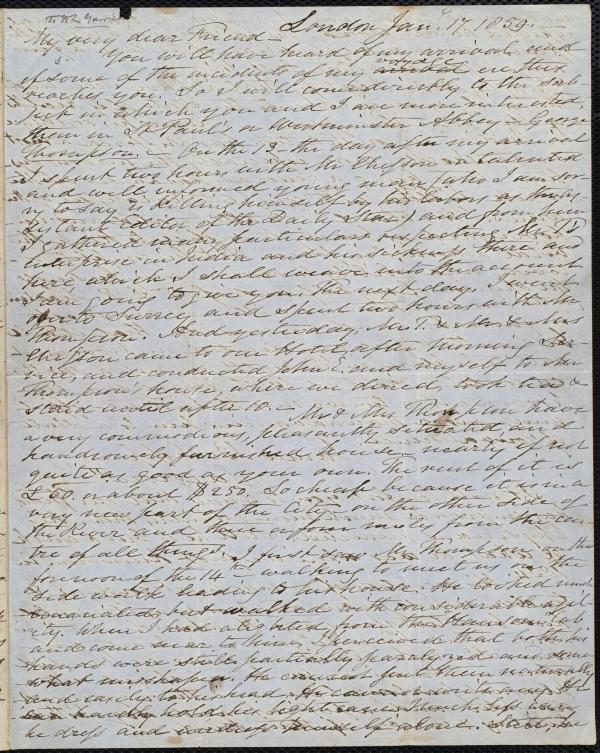 To W. L. Garrison
London Jany. 17. 1859.
My very dear Friend—
You will have heard of my arrival and
of some of the incidents of my voyage ere this
reaches you. So I will come directly to the sub-
ject in which you and I are more interested,
than in St Paul's or Westminster Abbey— George
Thompson.— On the 13. the day after my arrival
I spent two hours with Mr Chesson a talented
and well informed young man, (who I am sor-
ry to say is killing himself by his labors as the
sistant Editor of the Daily Star) and from him
I gathered many particulars respecting Mr. T's
enterprise in India and his sickness there and
here which I shall weave into the account
I am going to give you. The next day, I went
over to Surrey and spent two hours with Mr.
Thompson. And yesterday, Mr. T. & Mr. & Mrs
Chesson came to our Hotel after morning Ser-
vice, and conducted John E. and myself to Mr
Thompson's house, where we dined, took tea &
staid until after 10.— Mr & Mrs Thompson have
a very commodious, pleasantly situated and
handsomely furnished house— nearly if not
quite as good as your own. The rent of it is
£50. or about $250. So cheap because it is in a
very new part of the City— on the other side of
the River and three or four miles from the cen-
tre of all things. I first saw Mr. Thompson in the
forenoon of the 14th— walking to meet us on the
side walk leading to his house. He looked much
emaciated, but walked with considerable agil-
ity. When I had alighted from the Hansom Cab
and come near to him, I perceived that both his
hands were still partially paralyzed and some
what misshapen. He cannot put them naturally
and easily to his head. He
can hardly hold his
he dress and undress himself alone. Still, he